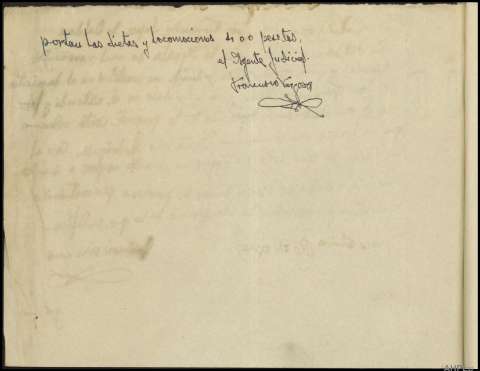 portan las dietas y locomociones 4000 pesetas.
el Agente Judicial.
Francisco